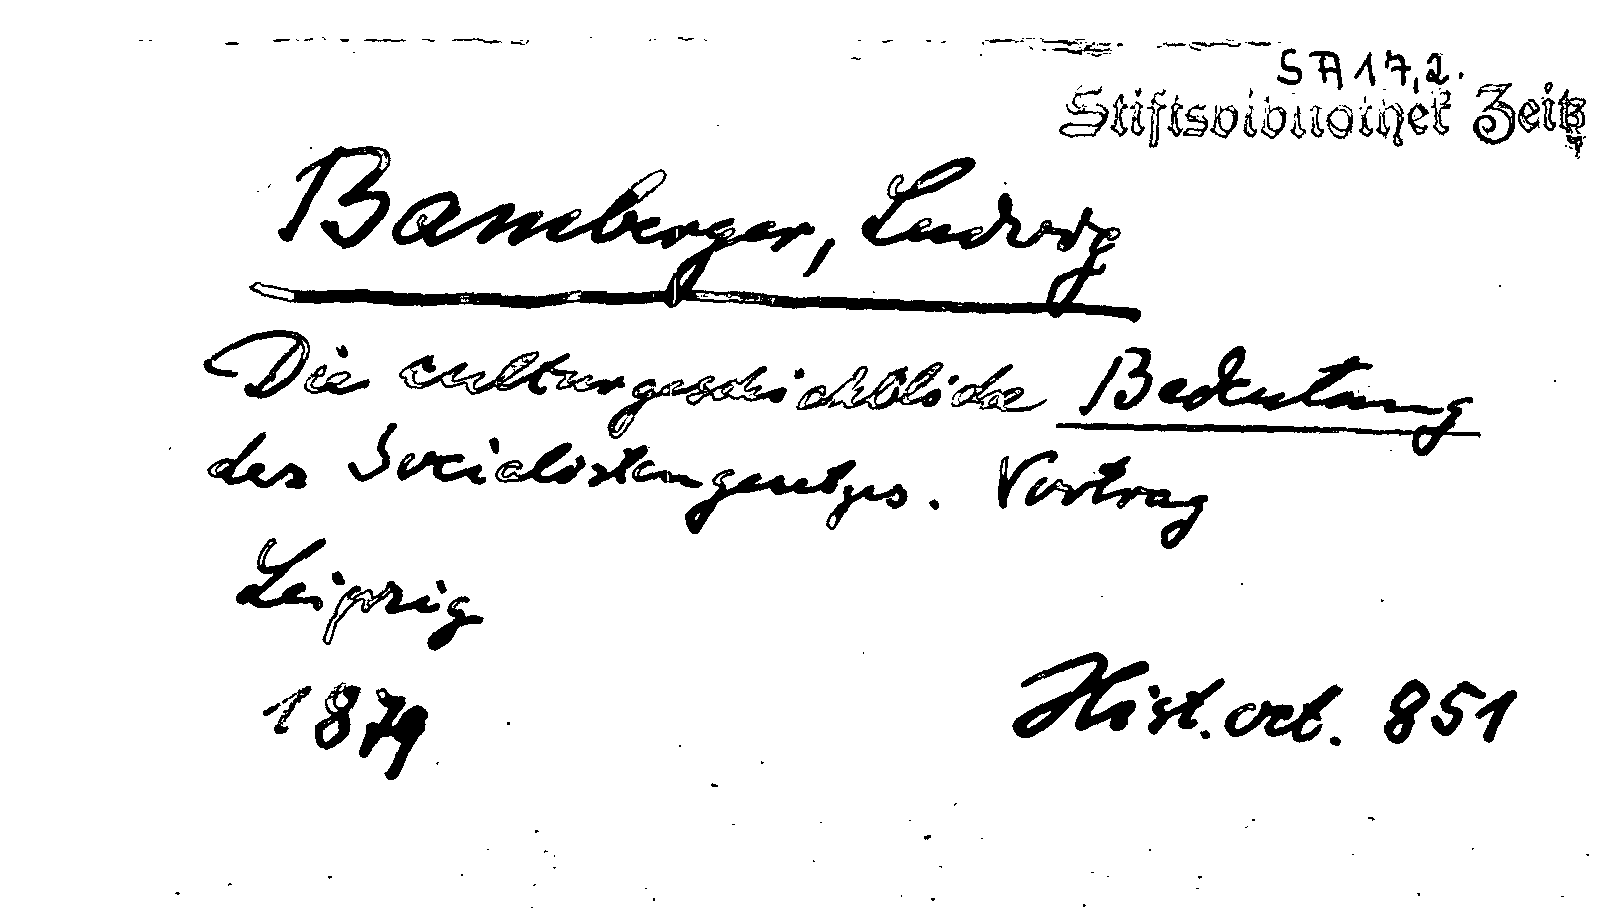 SA 17,2.
Stiftsbibliothek Zeitz
Bamberger, Ludwig
Die culturgeschichtliche Bedeutung
des Socialistengesetzes. Vortrag
Leipzig
1879
Hist. oct. 851